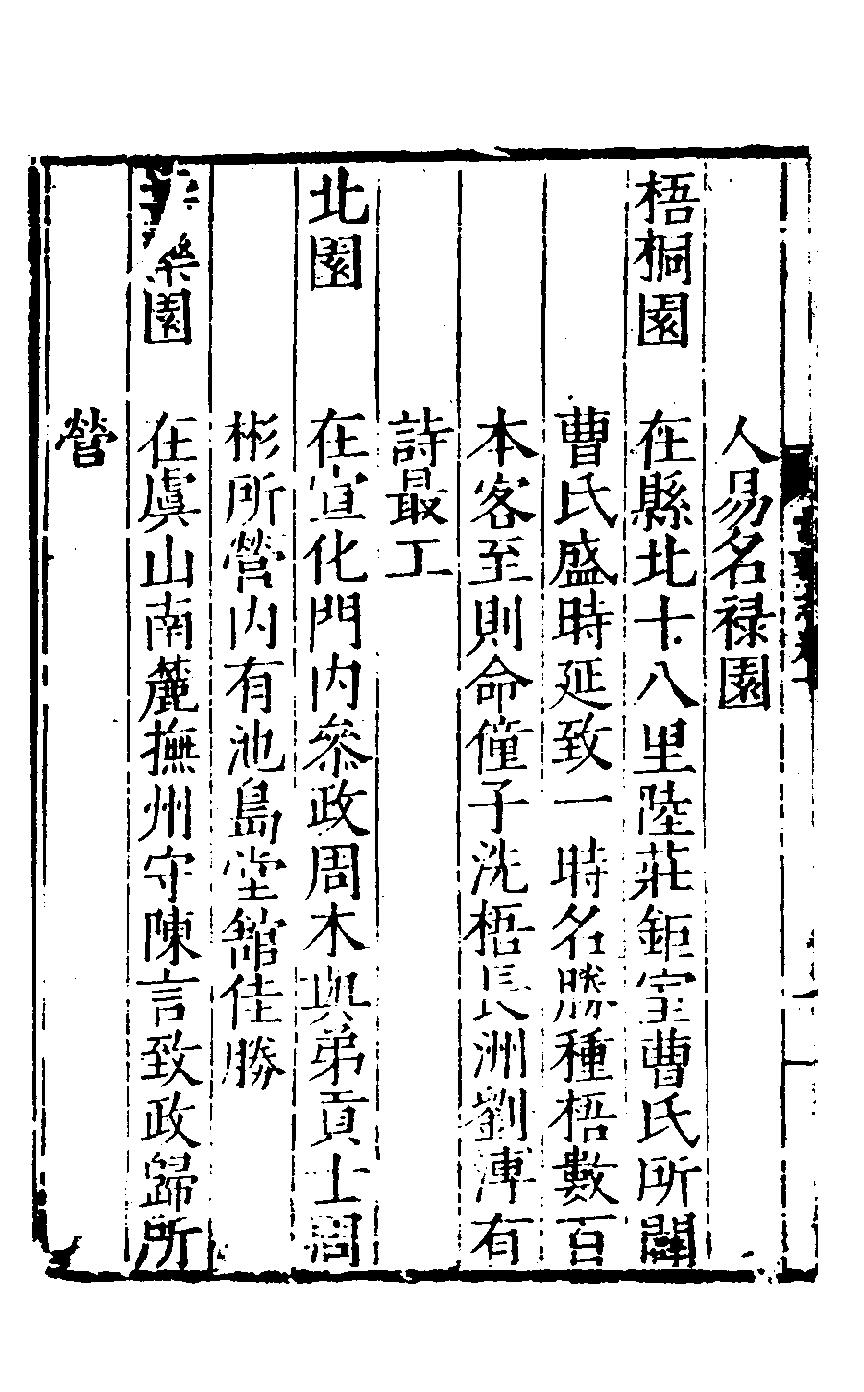 人易名祿園
梧桐園 在縣北十八里陸莊鉅室曹氏所闢
曹氏盛時延致一時名勝種梧數百
本客至則命僮子洗梧長洲劉溥有
詩最工
北園 在宣化門內參政周木與弟貢士周
彬所營內有池島堂館佳勝
樂園 在虞山南麓撫州守陳言致政歸所
營